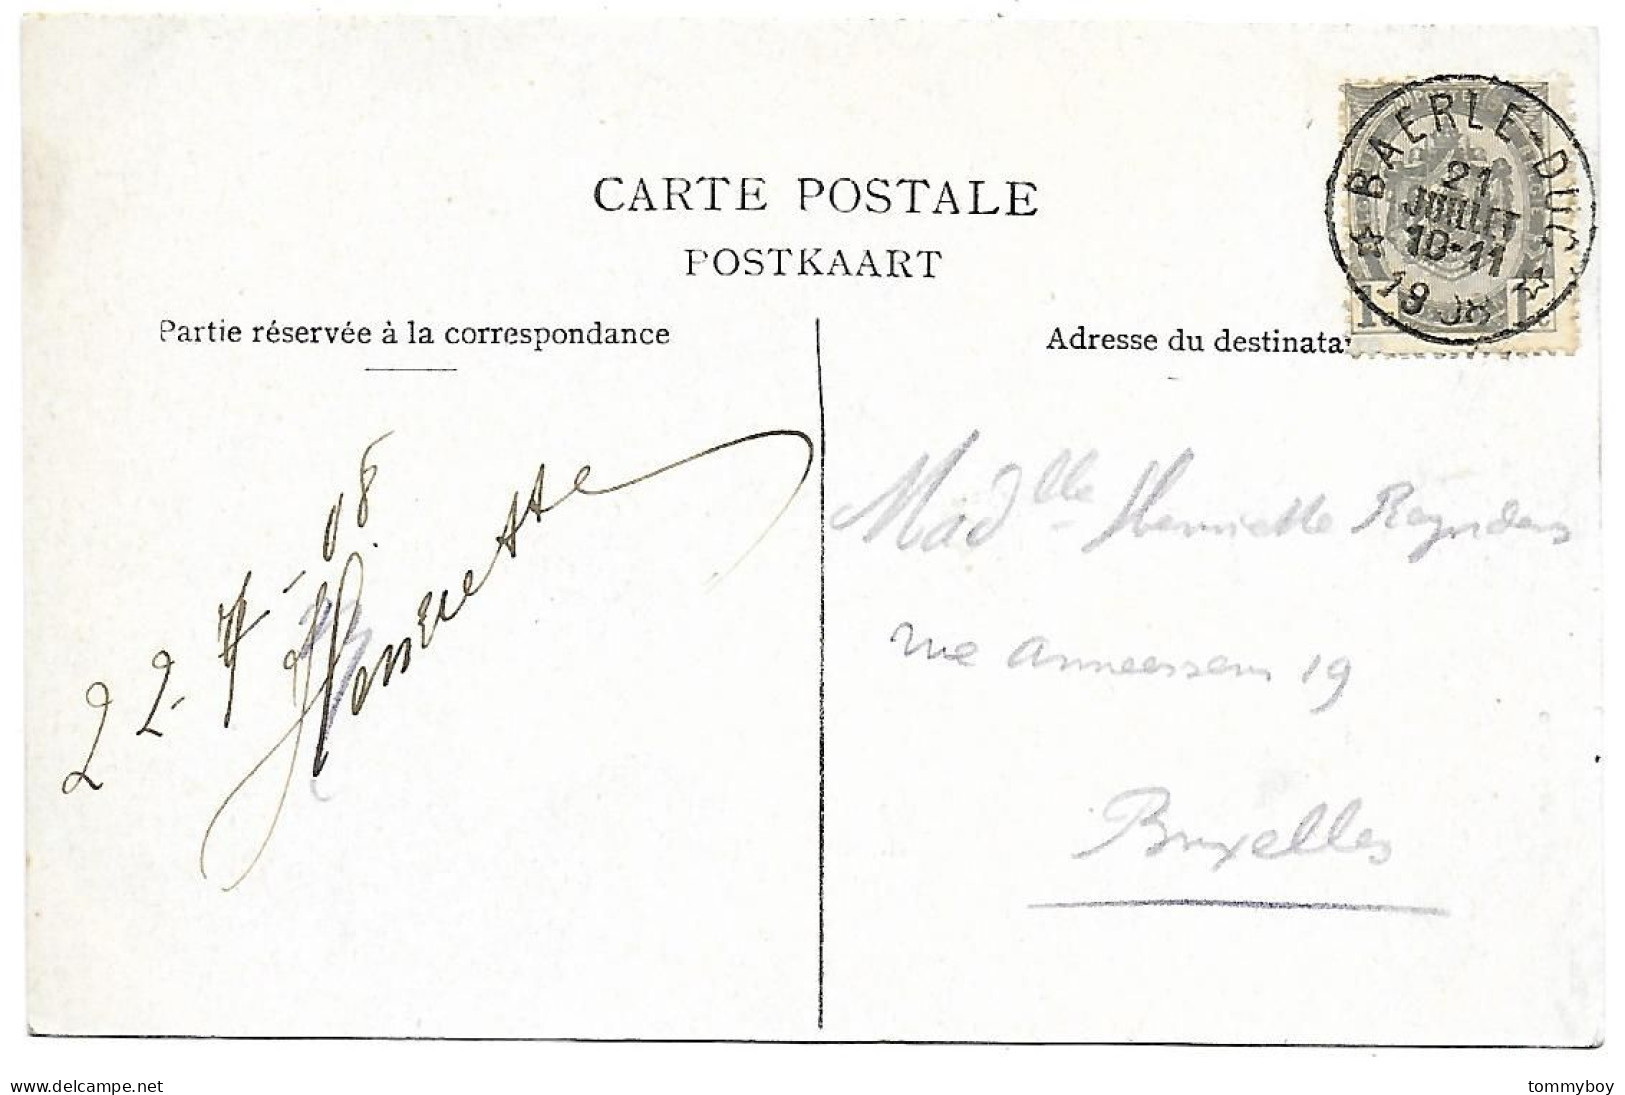 CARTE POSTALE
POSTKAART
BAERLE-DUC
21
JUILLET
10-11
1908
Partie réservée à la correspondance
Adresse du destinata
22-7-08
Henriette
Madlle Henriette Reynders
rue Anneessens 19
Bruxelles
delcampe.net
tommyboy